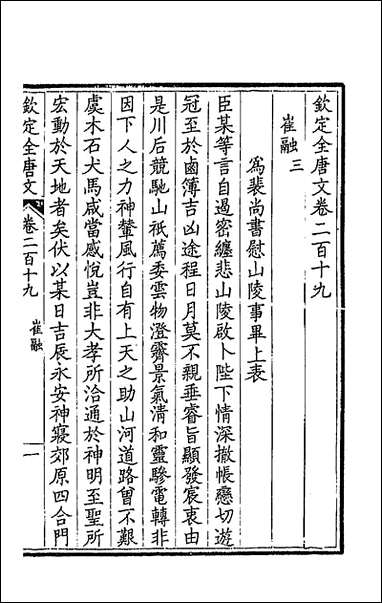 欽定全唐文卷二百十九
崔融三
爲裴尚書慰山陵事畢上表
臣某等言自遏密纏悲山陵啟卜陛下情深撤帳戀切遊
冠至於鹵簿吉凶途程日月莫不親垂睿旨顯發宸衷由
是川后競馳山祇薦委雲物澄霽景氣清和靈驂電轉非
因下人之力神輦風行自有上天之助山河道路曾不艱
虞木石犬馬咸當感悅豈非大孝所洽通於神明至聖所
宏動於天地者矣伏以某日吉辰永安神寢郊原四合門
欽定全唐文
卷二百十九
崔融
一